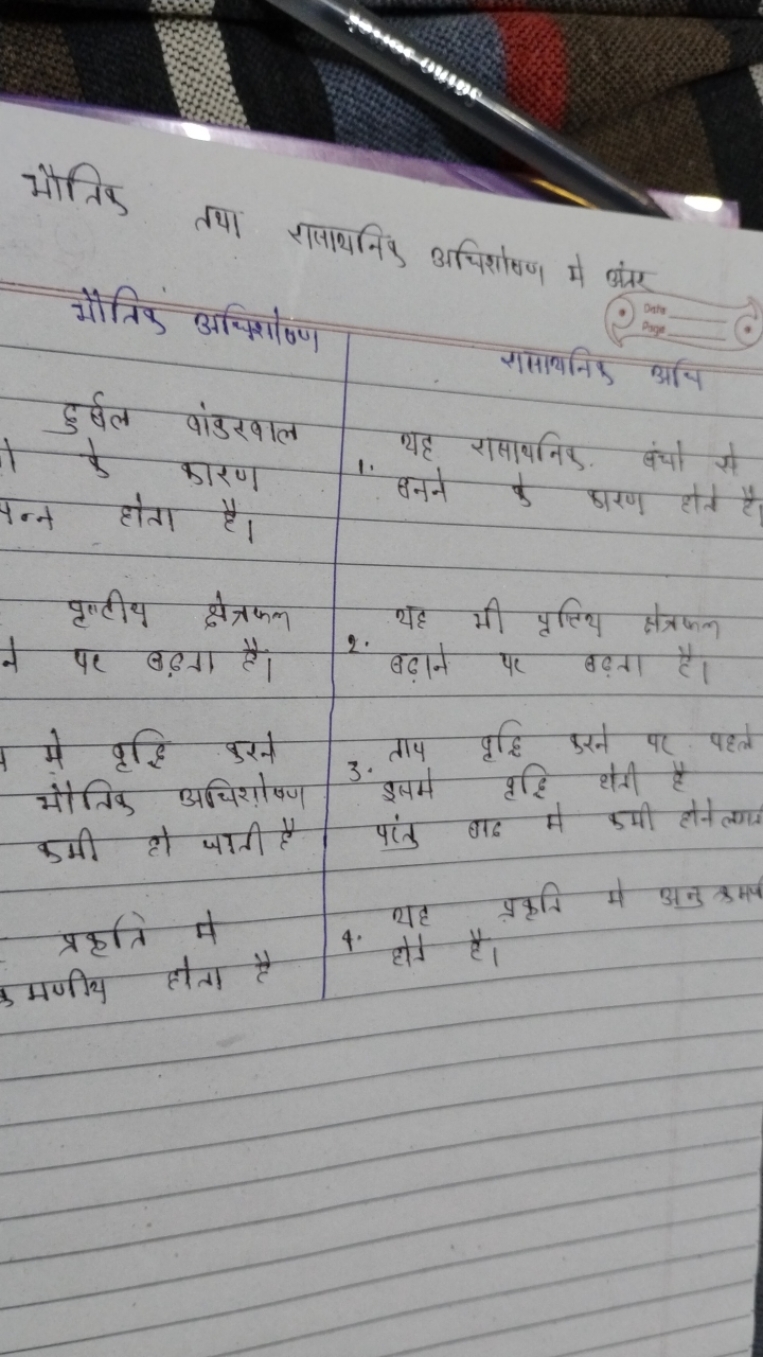 भौतिक तथा रासायनिक अधिशोषण मे अंतर
Date
Page
भौतिक अधिशोषण
रासायनिक अधि
दुर्बल वांडरवाल
के कारण
होता है।
1. यह रासायनिक बंधो से
बनने के कारण होते है।
पृष्ठीय क्षेत्रफल
ने पर बढ़ता है।
2. यह भी पृष्ठिय क्षेत्रफल
बढ़ाने पर बढ़ता है।
मे वृद्धि करने
भौतिक अधिशोषण
कमी हो जाती है
3. ताप वृद्धि करने पर पहले
इसमे वृद्धि होती है
परंतु बाद मे कमी होने
प्रकृति मे
क्रमणीय होता है
4. यह प्रकृति मे
होते है।